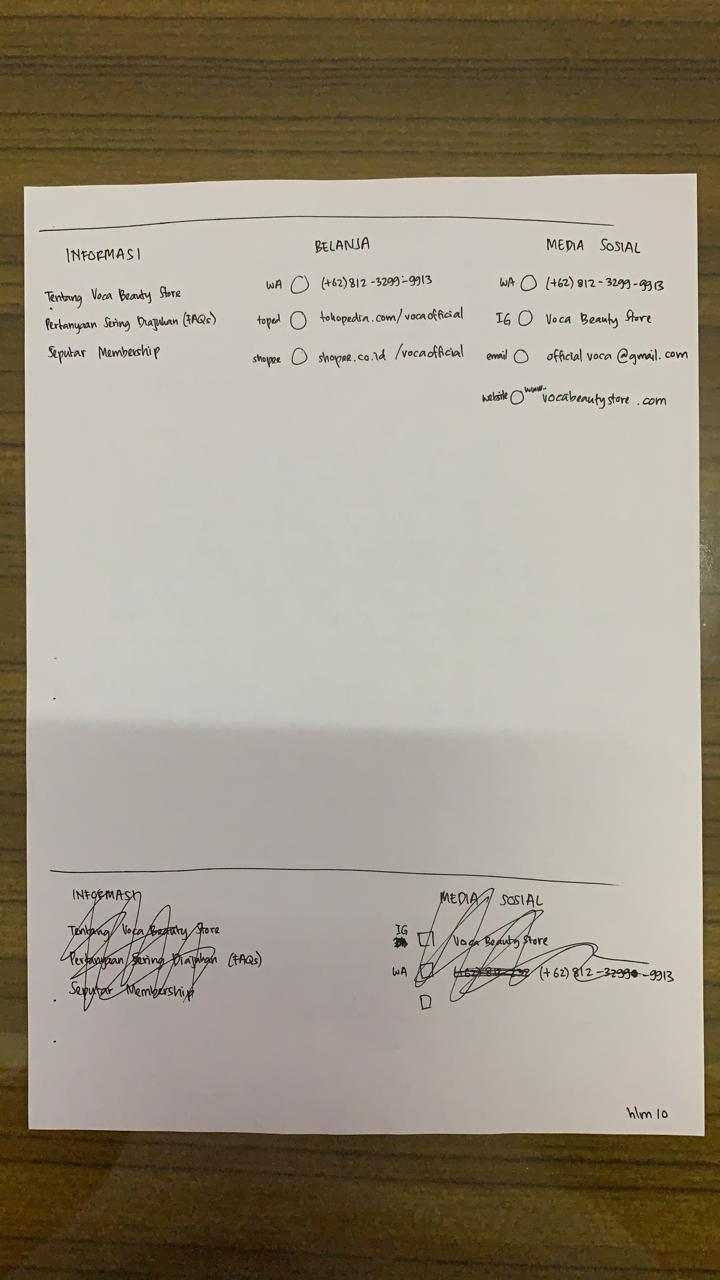 INFORMASI
Tentang Voca Beauty Store
Pertanyaan Sering Diajukan (FAQs)
Seputar Membership
BELANJA
WA (+62) 812-3299-9913
toped tokopedia.com/vocaofficial
shopee shopee.co.id/vocaofficial
MEDIA SOSIAL
WA (+62) 812-3299-9913
IG Voca Beauty Store
email official voca@gmail.com
website www.vocabeautystore.com
INFORMASI
Tentang Voca Beauty Store
Pertanyaan Sering Diajukan (FAQs)
Seputar Membership
MEDIA SOSIAL
IG Voca Beauty Store
WA (+62) 812-3299-9913
hlm 10